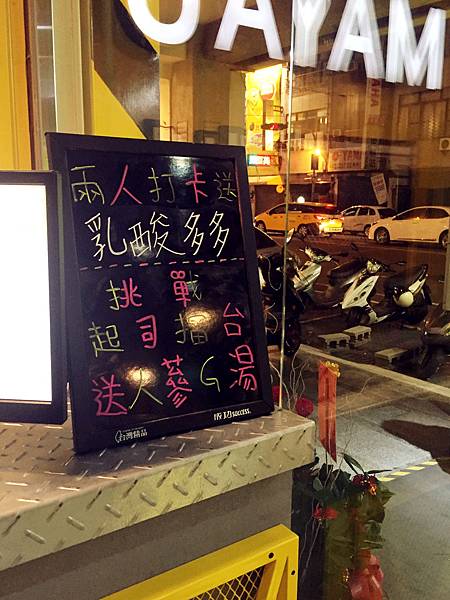 OAYAM
兩人打卡送
乳酸多多
挑戰
起司擂台
送人蔘G湯
成功success.
台灣精品